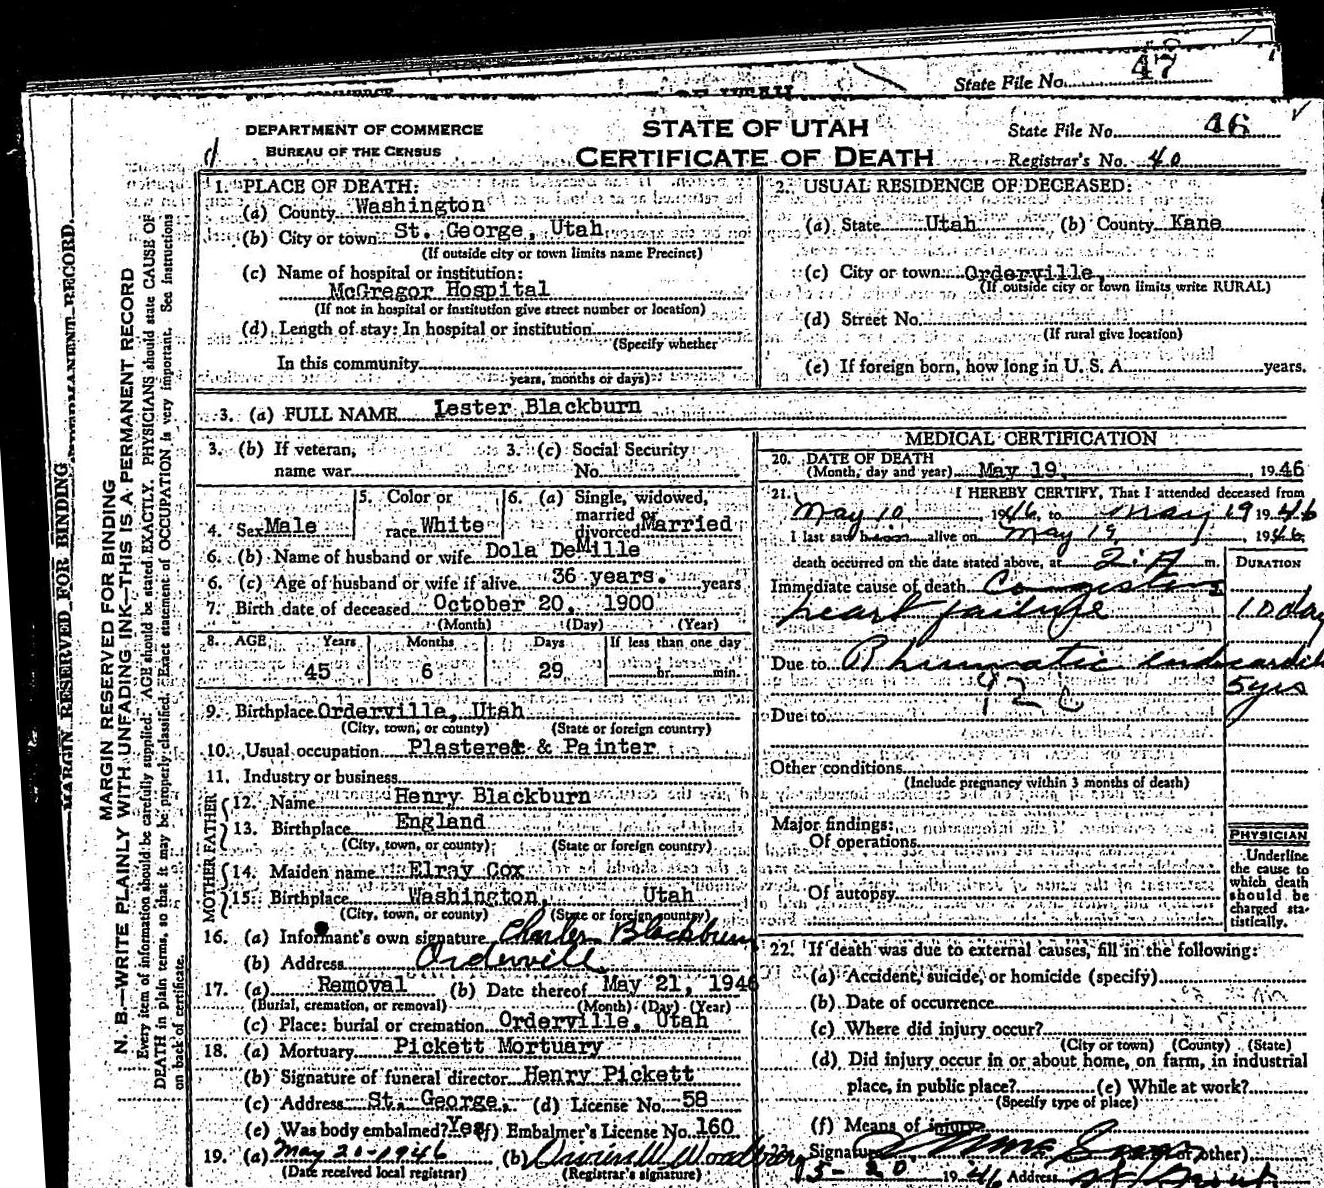 State File No. 47
DEPARTMENT OF COMMERCE
BUREAU OF THE CENSUS
STATE OF UTAH
CERTIFICATE OF DEATH
State File No. 46
Registrar's No. 40
MARGIN RESERVED FOR BINDING
MARGIN RESERVED FOR BINDING
N. B.—WRITE PLAINLY WITH UNFADING INK—THIS IS A PERMANENT RECORD
Every item of information should be carefully supplied. AGE should be stated EXACTLY. PHYSICIANS should state CAUSE OF
DEATH in plain terms, so that it may be properly classified. Exact statement of OCCUPATION is very important. See instructions
on back of certificate.
1. PLACE OF DEATH:
(a) County Washington
(b) City or town St. George, Utah
(If outside city or town limits name Precinct)
(c) Name of hospital or institution:
McGregor Hospital
(If not in hospital or institution give street number or location)
(d) Length of stay: In hospital or institution
(Specify whether
In this community
years, months or days)
2. USUAL RESIDENCE OF DECEASED:
(a) State Utah (b) County Kane
(c) City or town Orderville,
(If outside city or town limits write RURAL)
(d) Street No.
(If rural give location)
(e) If foreign born, how long in U. S. A. years.
3. (a) FULL NAME Lester Blackburn
3. (b) If veteran,
name war
3. (c) Social Security
No.
4. Sex Male
5. Color or
race White
6. (a) Single, widowed,
married or
divorced Married
6. (b) Name of husband or wife Dola DeMille
6. (c) Age of husband or wife if alive 36 years. years
7. Birth date of deceased October 20, 1900
(Month) (Day) (Year)
8. AGE Years Months Days If less than one day
45 6 29 hr. min.
9. Birthplace Orderville, Utah
(City, town, or county) (State or foreign country)
10. Usual occupation Plasterer & Painter
11. Industry or business
FATHER
12. Name Henry Blackburn
13. Birthplace England
(City, town, or county) (State or foreign country)
MOTHER
14. Maiden name Elray Cox
15. Birthplace Washington, Utah
(City, town, or county) (State or foreign country)
16. (a) Informant's own signature Charles Blackburn
(b) Address Orderville
17. (a) Removal (b) Date thereof May 21, 1946
(Burial, cremation, or removal) (Month) (Day) (Year)
(c) Place: burial or cremation Orderville, Utah
18. (a) Mortuary Pickett Mortuary
(b) Signature of funeral director Henry Pickett
(c) Address St. George, (d) License No. 58
(e) Was body embalmed? Yes (f) Embalmer's License No. 160
19. (a) May 20-1946 (b)
(Date received local registrar) (Registrar's signature)
MEDICAL CERTIFICATION
20. DATE OF DEATH
(Month, day and year) May 19, 1946
21. I HEREBY CERTIFY, That I attended deceased from
May 10 1946, to May 19 1946
I last saw him alive on May 19, 1946
death occurred on the date stated above, at 2:A m.
DURATION
Immediate cause of death Congestive
heart failure 10 day
Due to Rhumatic endocardit
92 c 5 yrs
Due to
Other conditions
(Include pregnancy within 3 months of death)
Major findings:
Of operations
Of autopsy
PHYSICIAN
Underline
the cause to
which death
should be
charged sta-
tistically.
22. If death was due to external causes, fill in the following:
(a) Accident, suicide, or homicide (specify)
(b) Date of occurrence
(c) Where did injury occur?
(City or town) (County) (State)
(d) Did injury occur in or about home, on farm, in industrial
place, in public place? (e) While at work?
(Specify type of place)
(f) Means of injury
23. Signature or other)
5-20 1946 Address